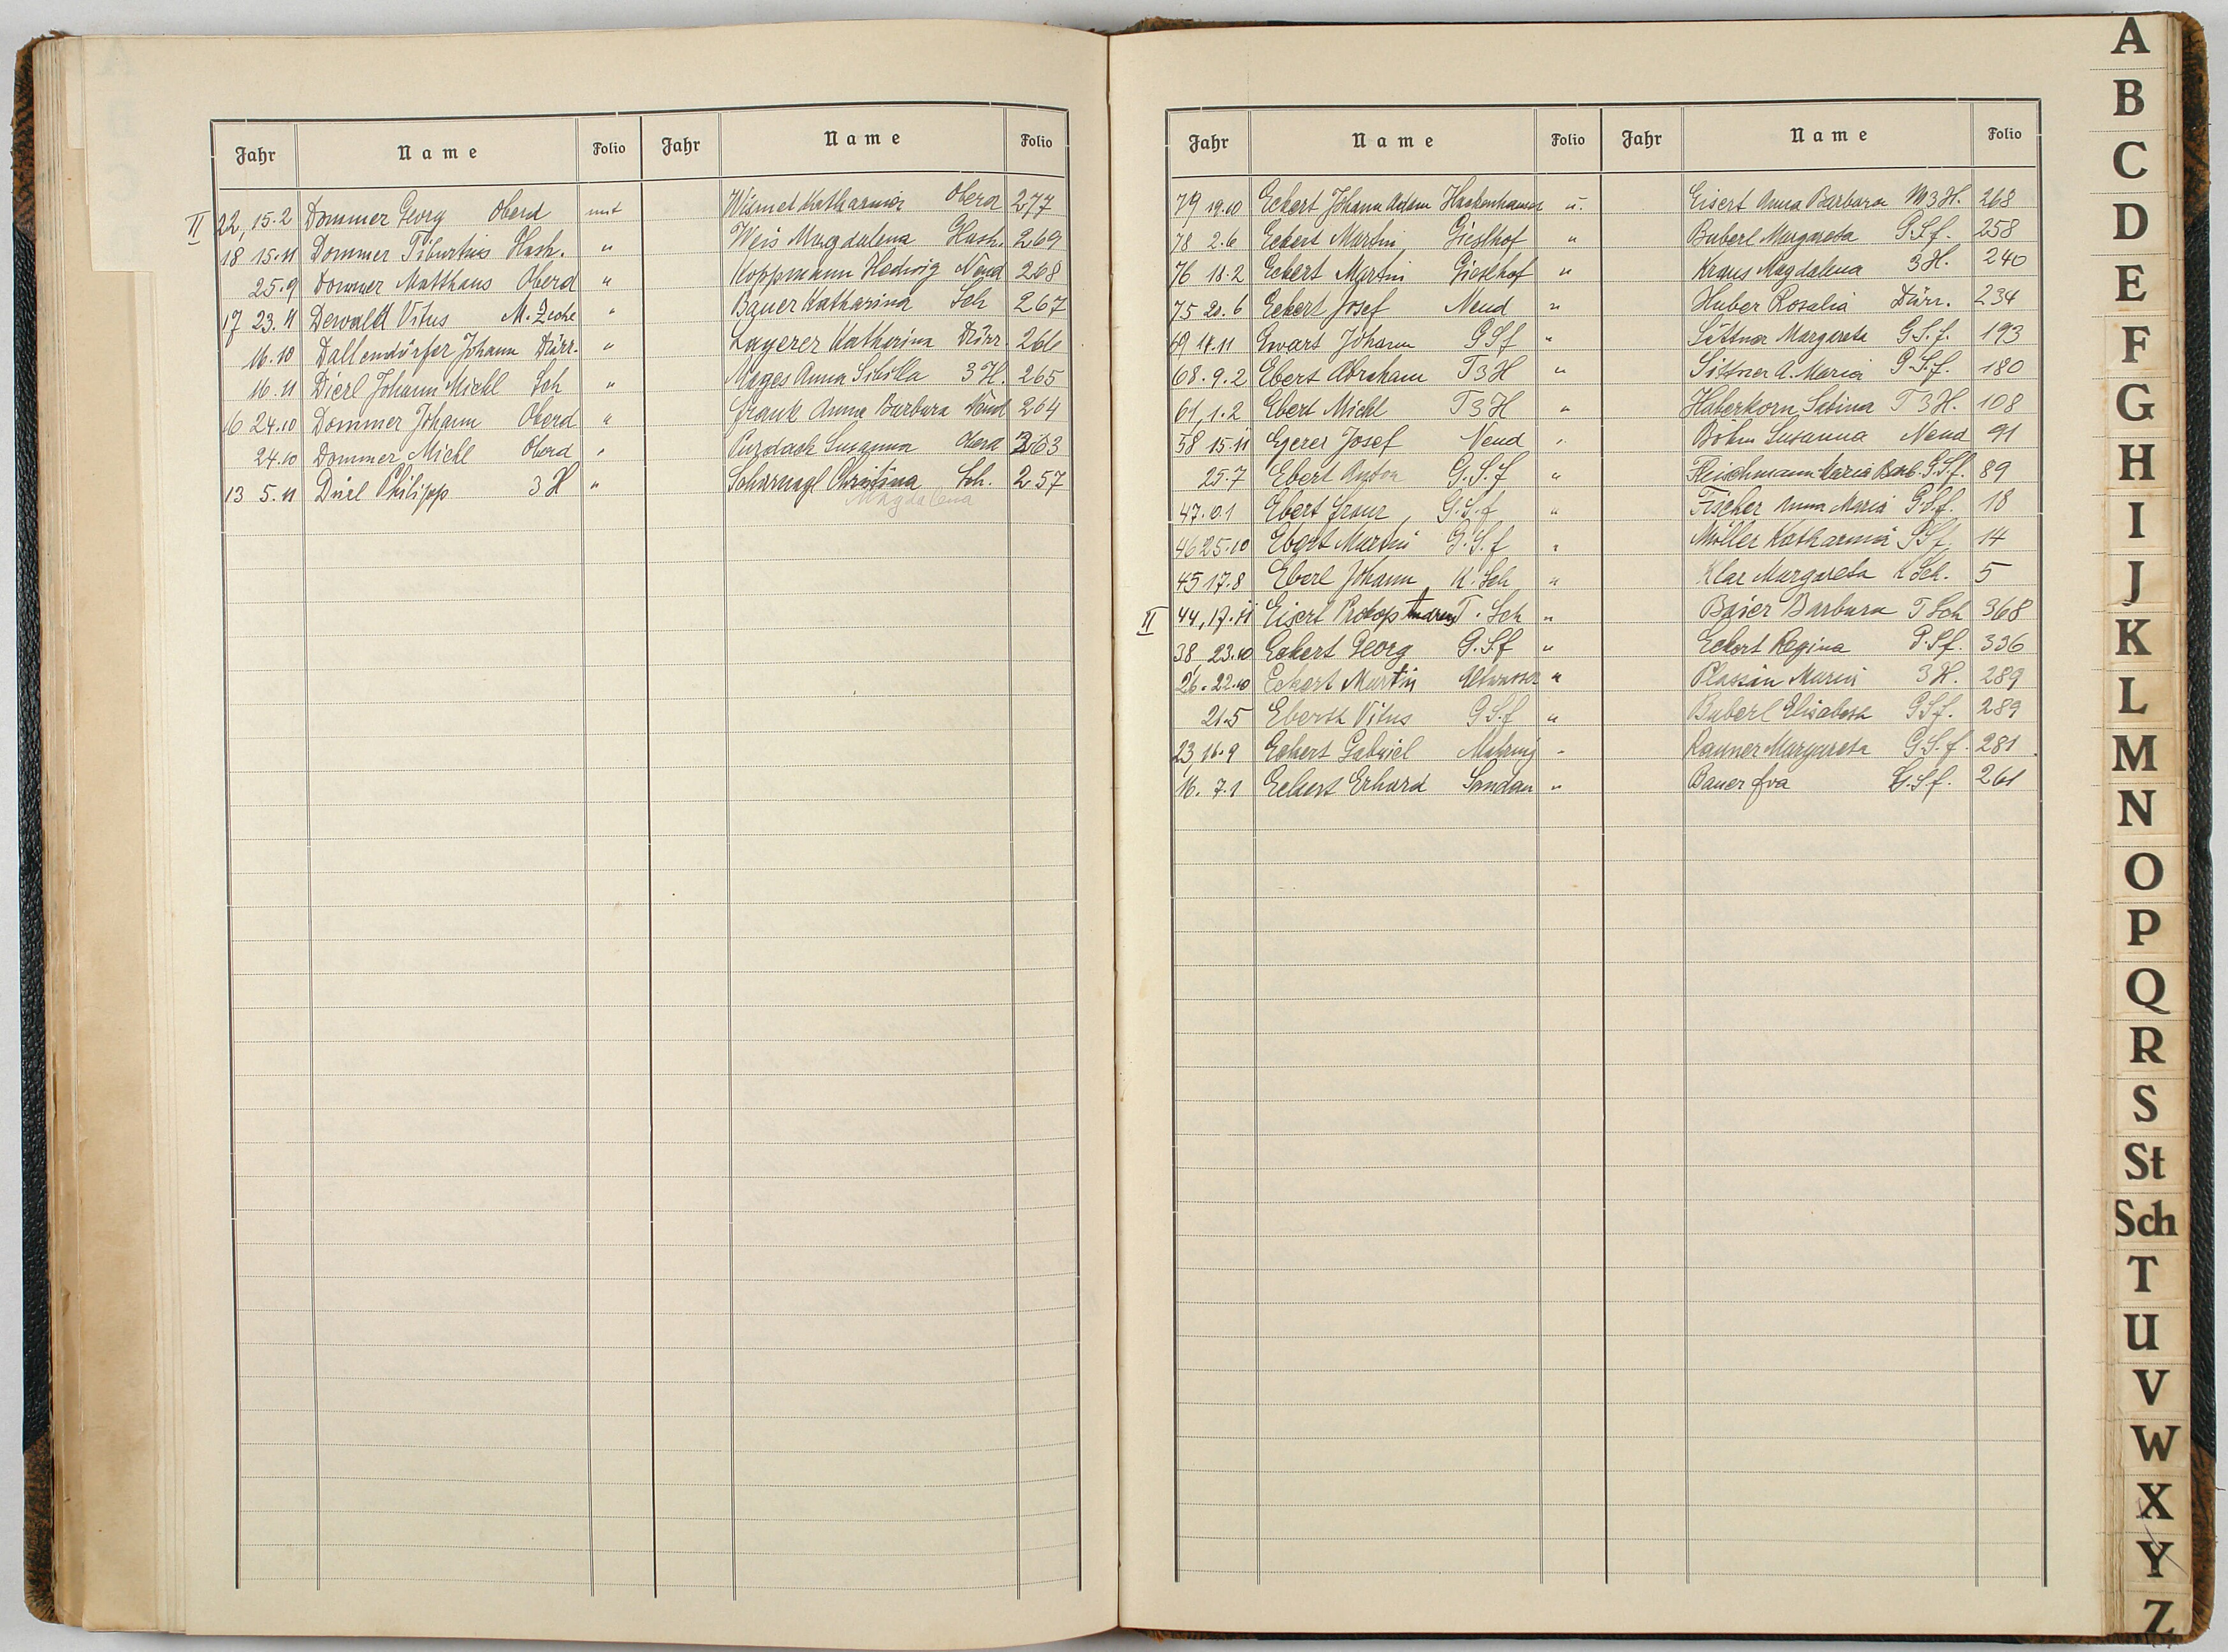 Jahr Name Folio Jahr Name Folio
II 22, 15.2 Dommer Georg Oberd mit Wismet Katharina Oberd 277
18 15.11 Dommer Tiburtius Hash. " Weis Magdalena Hash. 269
25.9 Dommer Matthäus Oberd " Koppmann Hedwig Neud 268
17 23.11 Dewald Vitus M. Zeche " Bauer Katharina Sch 267
16.10 Dallendörfer Johann Dürr. " Layerer Katharina Dürr 266
16.11 Dierl Johann Michl Sch " Mages Anna Sibilla 3H. 265
16 24.10 Dommer Johann Oberd " Frank Anna Barbara Neud 264
24.10 Dommer Michl Oberd " Susanna Oberd 263
13 5.11 Dürl Philipp 3H " Scharnagl Christina Sch. 257
Magdalena
Jahr Name Folio Jahr Name Folio
79 19.10 Eckert Johann Adam Hackenhäuser u. Eisert Anna Barbara M3H. 268
78 2.6 Eckert Martin Gieslhof " Buberl Margareta G.S.f. 258
76 18.2 Eckert Martin Gieslhof " Kraus Magdalena 3H. 240
75 20.6 Eckert Josef Neud " Huber Rosalia Dürr. 234
69 18.11 Ewart Johann GSf " Süttner Margareta G.S.f. 193
68.9.2 Ebert Abraham T3H " Sittner A. Maria G.S.f. 180
61, 1.2 Ebert Michl T3H " Haberkorn Sabina T3H. 108
58 15.11 Egerer Josef Neud " Böhm Susanna Neud 91
25.7 Ebert Anton G.S.f " Fleischmann Maria Barb. G.S.f. 89
47.0.1 Ebert Franz G.S.f " Fischer Anna Maria G.S.f. 18
46 25.10 Ebert Martin G.S.f " Möller Katharina GSf. 14
45 17.8 Eberl Johann K. Sch " Klar Margareta K Sch. 5
II 44, 17.11 Eisert Prokop T. Sch " Baier Barbara T Sch 368
38, 23.10 Eckert Georg G.S.f " Eckert Regina G.Sf. 336
26.22.10 Eckert Martin Altwasser " Plassin Maria 3H. 289
21.5 Ebertt Vitus GS.f " Buberl Elisabeth GSf. 289
23, 16.9 Eckert Gabriel Mähring " Rauner Margareta G.S.f. 281
16. 7.1 Eckert Erhard Sandau " Bauer Eva G.Sf. 261
A
B
C
D
E
F
G
H
I
J
K
L
M
N
O
P
Q
R
S
St
Sch
T
U
V
W
X
Y
Z